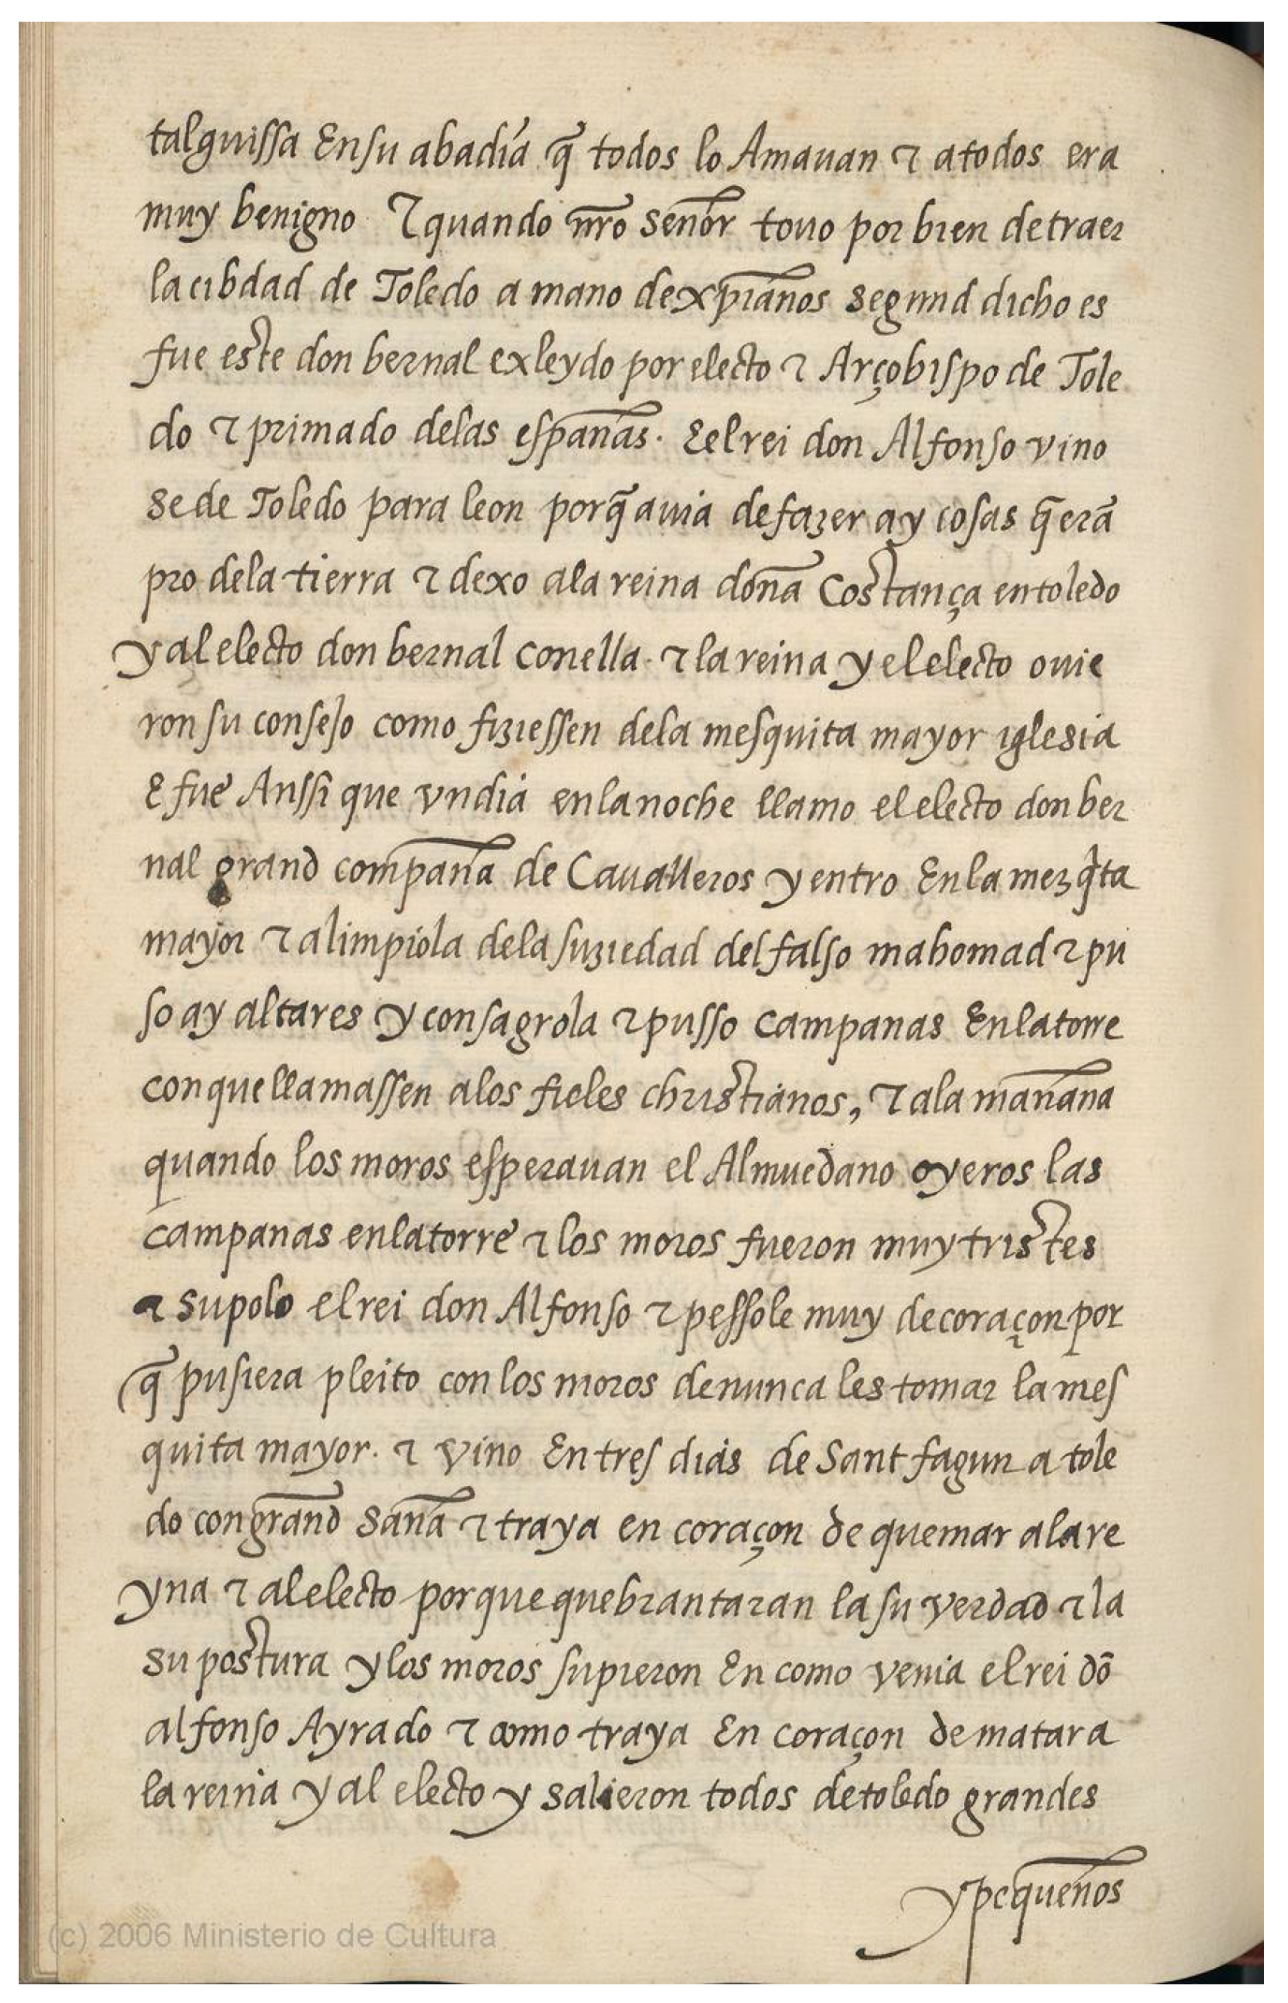 talguissa Ensu abadia q̃ todos lo Amauan ⁊ atodos era
muy benigno ⁊ quando nr̃o señor touo por bien detraer
la cibdad de Toledo a mano dexp̃ianos segund dicho es
fue este don bernal exleydo por electo ⁊ Arçobispo de Tole
do ⁊ primado delas españas. Eel rei don Alfonso vino
se de Toledo para leon porq̃ auia defazer ay cosas q̃ erã
pro dela tierra ⁊ dexo ala reina doña Costança entoledo
y al electo don bernal conella. ⁊ la reina y el electo ouie
ron su consejo como fiziessen dela mesquita mayor iglesia
E fue Anssi que vndia enlanoche llamo el electo don ber
nal grand compaña de Caualleros y entro Enla mezq̃ta
mayor ⁊ alimpiola dela suziedad del falso mahomad ⁊ pu
so ay altares y consagrola ⁊ pusso campanas Enlatorre
conquellamassen alos fieles christianos, ⁊ ala mañana
quando los moros esperauan el Almuedano oyeros las
campanas enlatorre ⁊ los moros fueron muy tristes
⁊ supolo el rei don Alfonso ⁊ pessole muy decoraçon por
q̃ pusiera pleito con los moros denunca les tomar la mes
quita mayor. ⁊ vino En tres dias de Sant fagun a tole
do con grand saña ⁊ traya en coraçon de quemar alare
yna ⁊ al electo porque quebrantaran la su verdad ⁊ la
su postura y los moros supieron En como venia el rei dõ
alfonso Ayrado ⁊ como traya En coraçon de matar a
la reina y al electo y salieron todos detoledo grandes
y pequeños
(c) 2006 Ministerio de Cultura